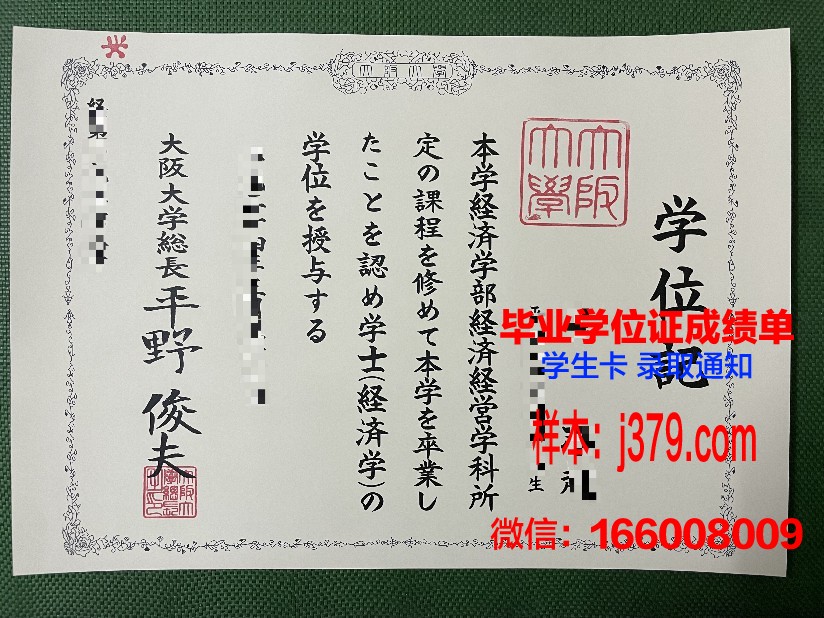 学位記
大阪大學
本学経済学部経済経営学科所
定の課程を修めて本学を卒業し
たことを認め学士(経済学)の
学位を授与する
大阪大学総長 平野 俊夫
毕业学位证成绩单
学生卡 录取通知
样本：j379.com
微信：166008009
生